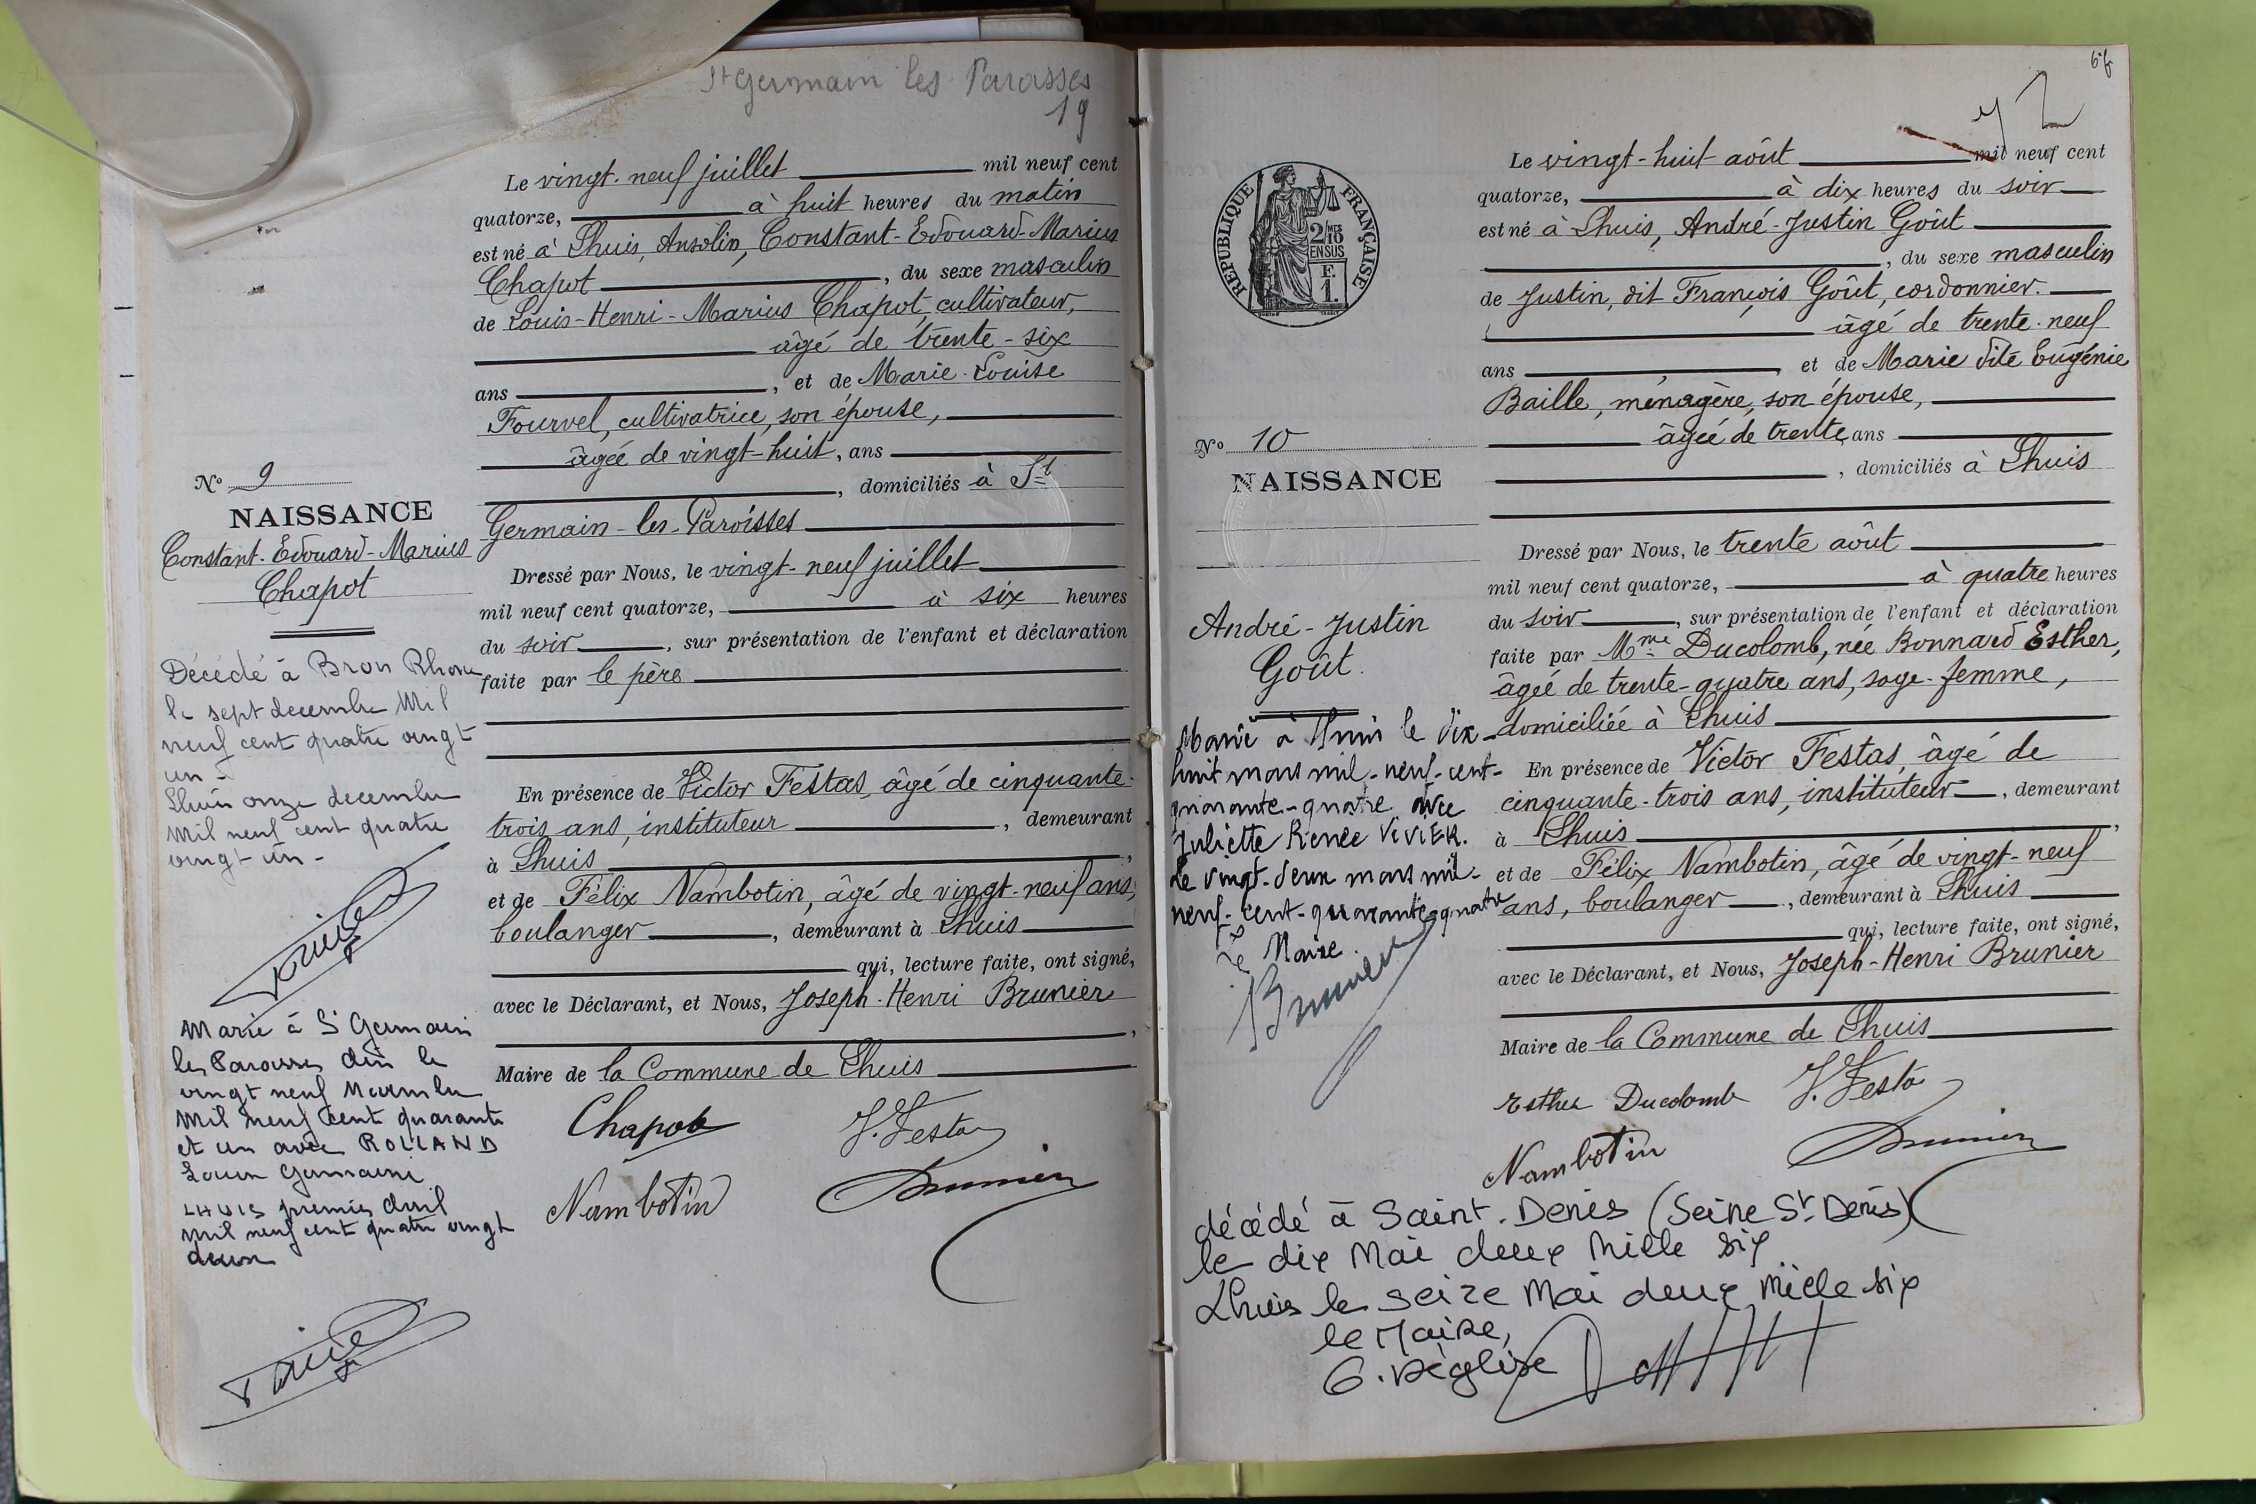 St Germain les Paroisses
19
Le vingt-neuf juillet mil neuf cent
quatorze, à huit heures du matin
est né à Lhuis, Ansolin, Constant-Edouard-Marius
Chapot, du sexe masculin
de Louis-Henri-Marius Chapot, cultivateur,
âgé de trente-six
ans, et de Marie-Louise
Fourvel, cultivatrice, son épouse,
âgée de vingt-huit, ans
, domiciliés à St
Germain-les-Paroisses
Dressé par Nous, le vingt-neuf juillet
mil neuf cent quatorze, à six heures
du soir, sur présentation de l'enfant et déclaration
faite par le père
En présence de Victor Festas, âgé de cinquante-
trois ans, instituteur, demeurant
à Lhuis,
et de Félix Nambotin, âgé de vingt-neuf ans,
boulanger, demeurant à Lhuis
qui, lecture faite, ont signé,
avec le Déclarant, et Nous, Joseph-Henri Brunier
,
Maire de la Commune de Lhuis
Chapot V. Festas
Nambotin Brunier
No 9
NAISSANCE
Constant-Edouard-Marius
Chapot
Décédé à Bron Rhone
le sept decembre Mil
neuf cent quatre vingt
un -
Lhuis onze decembre
Mil neuf cent quatre
vingt un -
Marié à St Germain
les Paroisses Ain le
vingt neuf Novembre
Mil neuf cent quarante
et un avec ROLLAND
Louise Germaine
LHUIS premier Avril
mil neuf cent quatre vingt
deux
72
Le vingt-huit août mil neuf cent
quatorze, à dix heures du soir
est né à Lhuis, André-Justin Goût
, du sexe masculin
de Justin, dit François Goût, cordonnier.
âgé de trente-neuf
ans, et de Marie dite Eugénie
Baille, ménagère, son épouse,
âgée de trente, ans
, domiciliés à Lhuis
Dressé par Nous, le trente août
mil neuf cent quatorze, à quatre heures
du soir, sur présentation de l'enfant et déclaration
faite par Mme Ducolomb, née Bonnard Esther,
âgée de trente-quatre ans, sage-femme,
domiciliée à Lhuis
En présence de Victor Festas, âgé de
cinquante-trois ans, instituteur, demeurant
à Lhuis,
et de Félix Nambotin, âgé de vingt-neuf
ans, boulanger, demeurant à Lhuis
qui, lecture faite, ont signé,
avec le Déclarant, et Nous, Joseph-Henri Brunier
Maire de la Commune de Lhuis
Esther Ducolomb V. Festas
Nambotin Brunier
RÉPUBLIQUE FRANÇAISE
2/10 MES
EN SUS
F.
1.
No 10
NAISSANCE
André-Justin
Goût.
Marié à Lhuis le dix-
huit mars mil-neuf-cent-
quarante-quatre avec
Juliette Renée VIVIER.
Le vingt-deux mars mil-
neuf-cent-quarante-quatre
Le Maire.
Brunier
décédé à Saint-Denis (Seine St Denis)
le dix Mai deux mille six
Lhuis le seize Mai deux mille six
le Maire,
G. Déglise